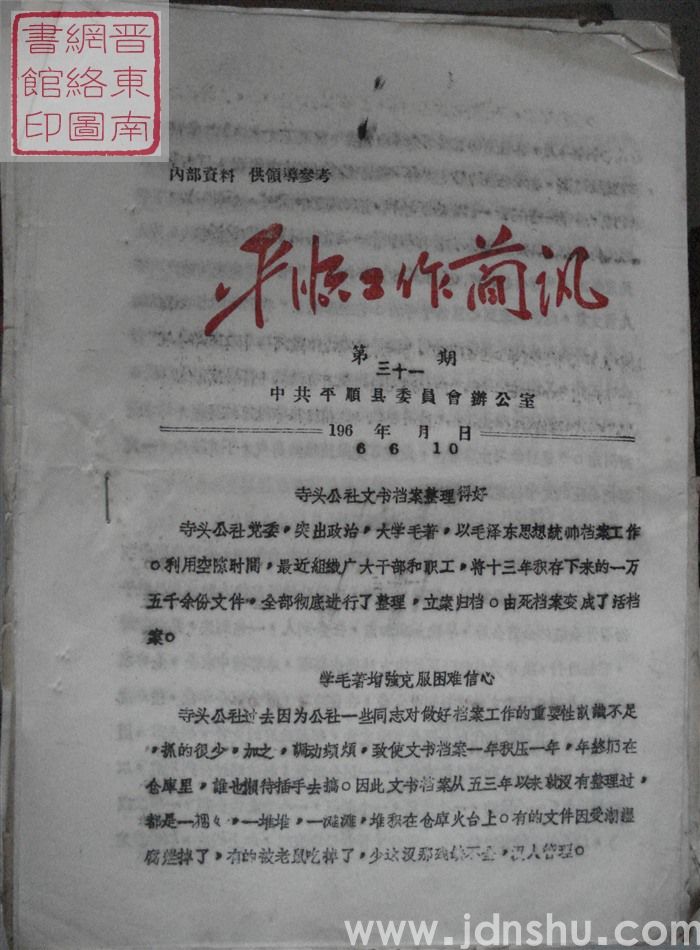 晋東南
網絡圖
書館印
內部資料 供領導參考
平顺工作简讯
第三十一期
中共平順县委員會辦公室
1966年6月10日
寺头公社文书档案整理得好
寺头公社党委，突出政治，大学毛著，以毛泽东思想統帅档案工作
。利用空隙时間，最近組織广大干部和职工，将十三年积存下来的一万
五千余份文件，全部彻底进行了整理，立案归档。由死档案变成了活档
案。
学毛著增強克服困难信心
寺头公社过去因为公社一些同志对做好档案工作的重要性訊識不足
，抓的很少，加之，調动頻煩，致使文书档案一年积压一年，年終扔在
仓库里，誰也懒待插手去搞。因此文书档案从五三年以来就沒有整理过，
都是一捆々，一堆堆，一滩滩，堆积在仓库火台上。有的文件因受潮湿
腐烂掉了，有的被老鼠吃掉了，少这沒那残缺不全，沒人管理。
www.jdnshu.com